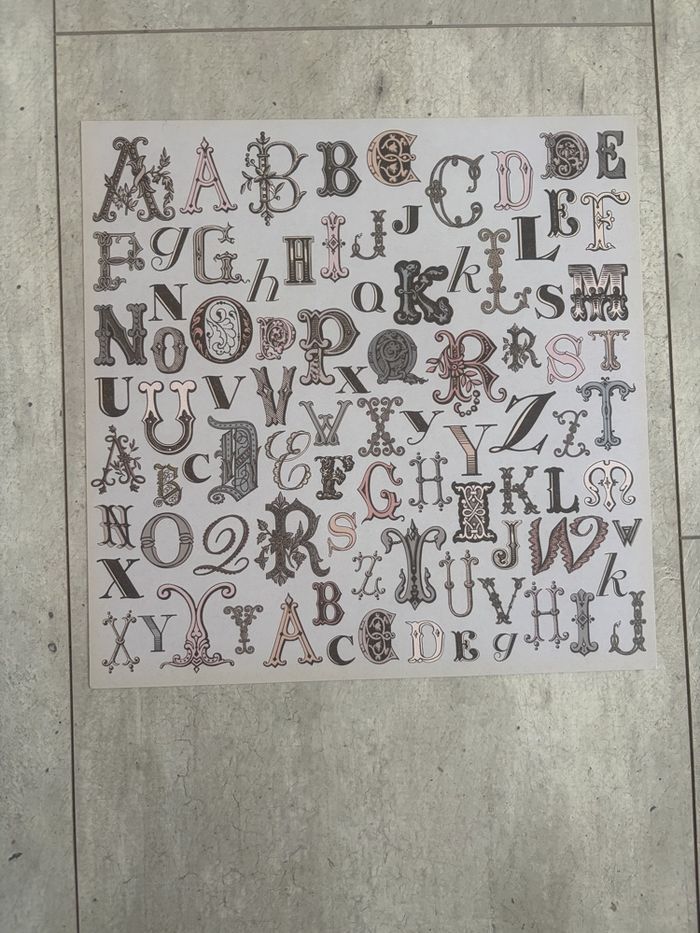 A A B B C C D D E
E g G h H I J J L E F
N Q K k L S M
N O O P P X Q R R S T
U U V V W X y Y Z I T
A B C D E F G H I K L M
N O Q R S Z T U J W W
X k
X Y T T A B C C D E g V H I J